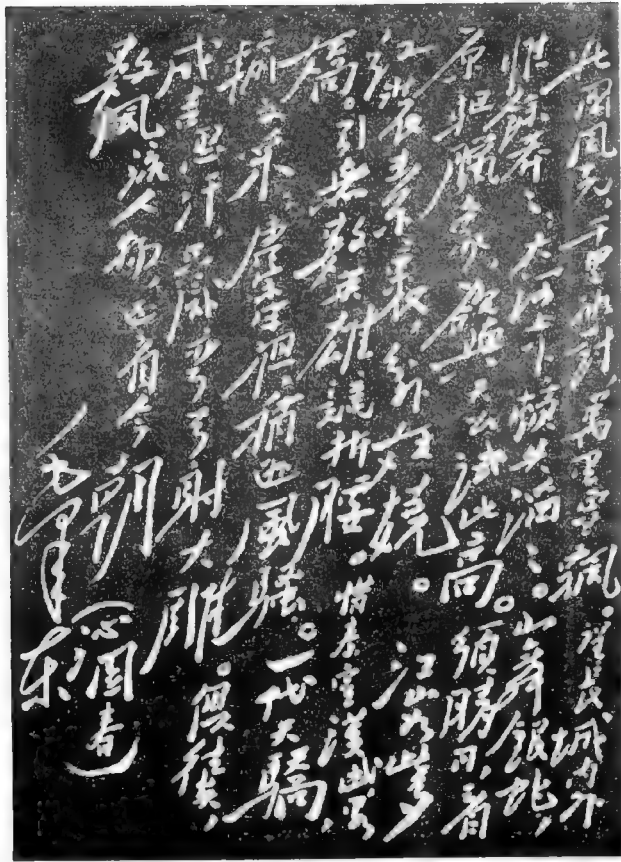 北國風光，千里冰封，萬里雪飄。望長城內外
惟餘莽、，大河上下，頓失滔、。山舞銀蛇，
原驅臘象，欲與天公試比高。須晴日，看
紅裝素裹，分外妖嬈。江山如此多
嬌。引無數英雄競折腰。惜秦皇漢武，略
輸文采，唐宗宋祖，稍遜風騷。一代天驕，
成吉思汗，只識彎弓射大雕。俱往矣，
數風流人物，還看今朝（沁園春）
毛澤東